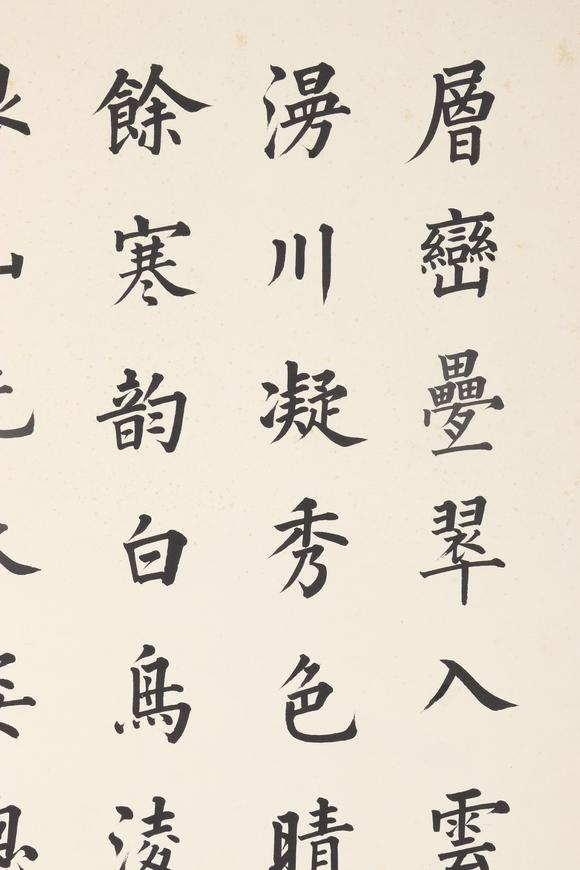 層巒疊翠入雲
漫川凝秀色晴
餘寒韵白鳥淩